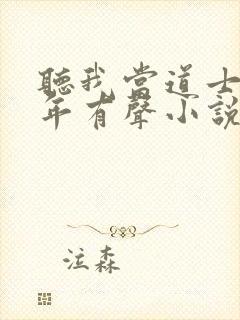 聽我當道士
年有聲小說
泣森